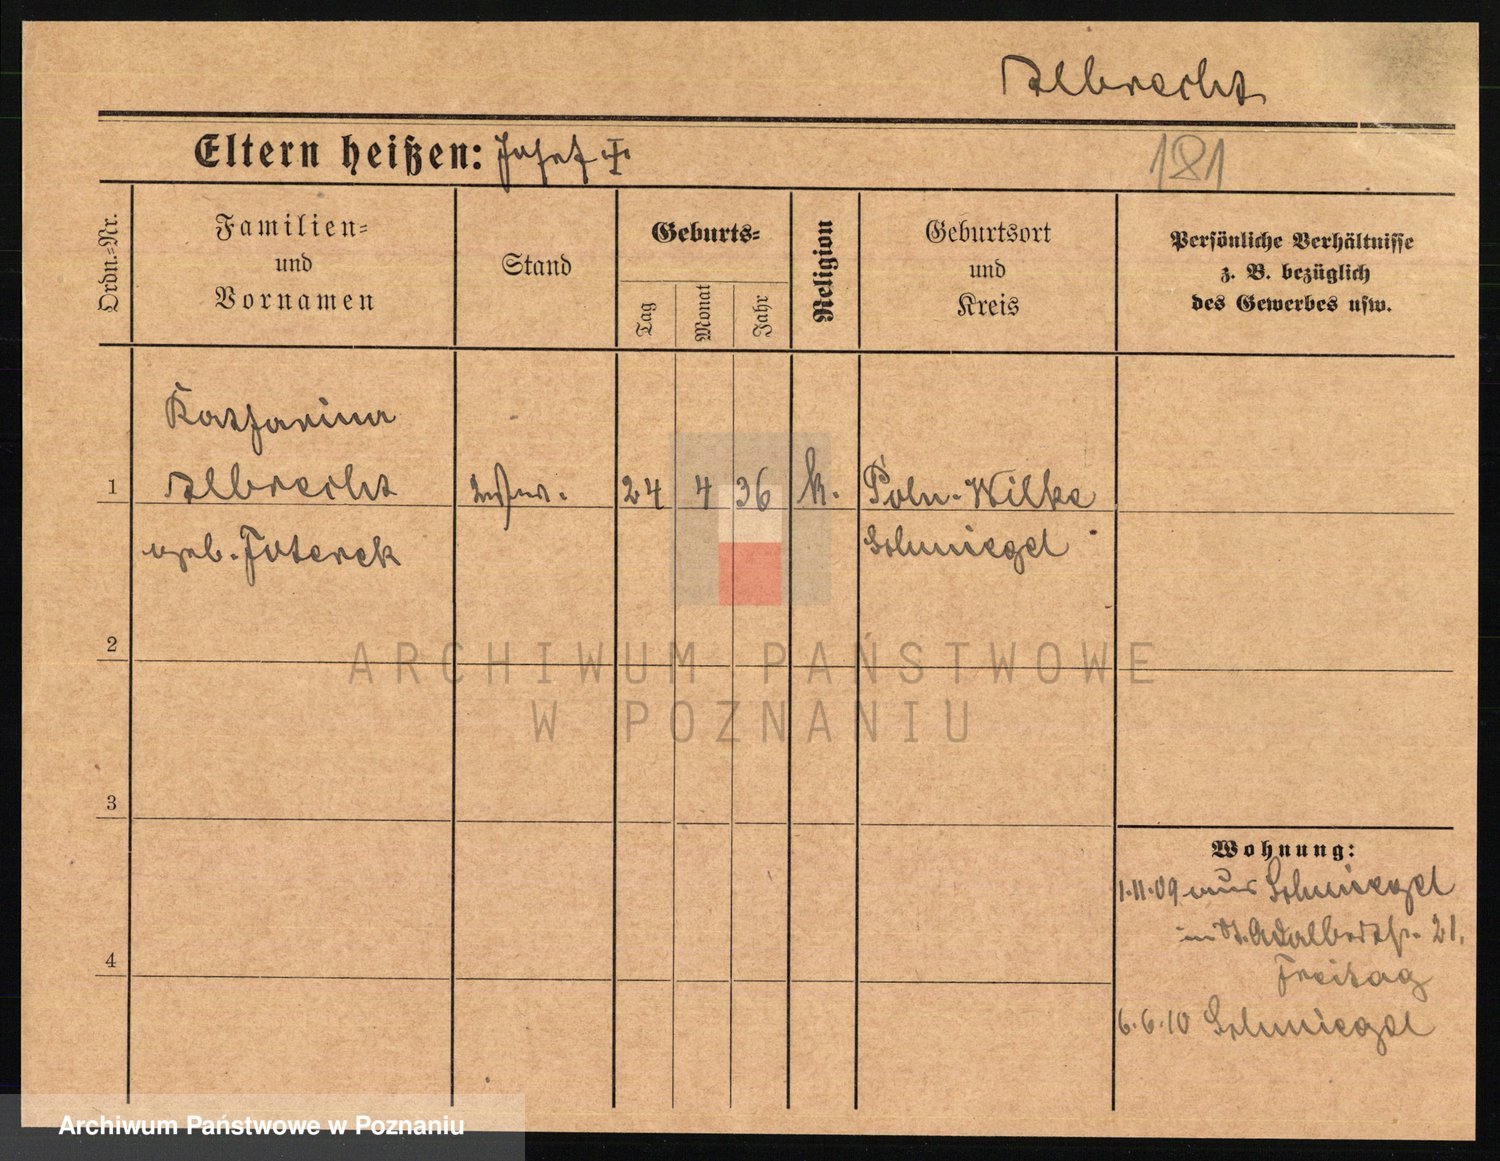 Albrecht
Eltern heißen: Josef †.
181
Ordn.-Nr.
Familien-
und
Vornamen
Stand
Geburts-
Tag
Monat
Jahr
Religion
Geburtsort
und
Kreis
Persönliche Verhältnisse
z. B. bezüglich
des Gewerbes usw.
Katharina
1 Albrecht 24 4 36 k. Poln-Wilke
geb. Schmiegel
2
ARCHIWUM PAŃSTWOWE
W POZNANIU
3
Wohnung:
1.11.09 aus Schmiegel
in St. Adalbertstr. 21.
4
Freitag
6.6.10 Schmiegel
Archiwum Państwowe w Poznaniu